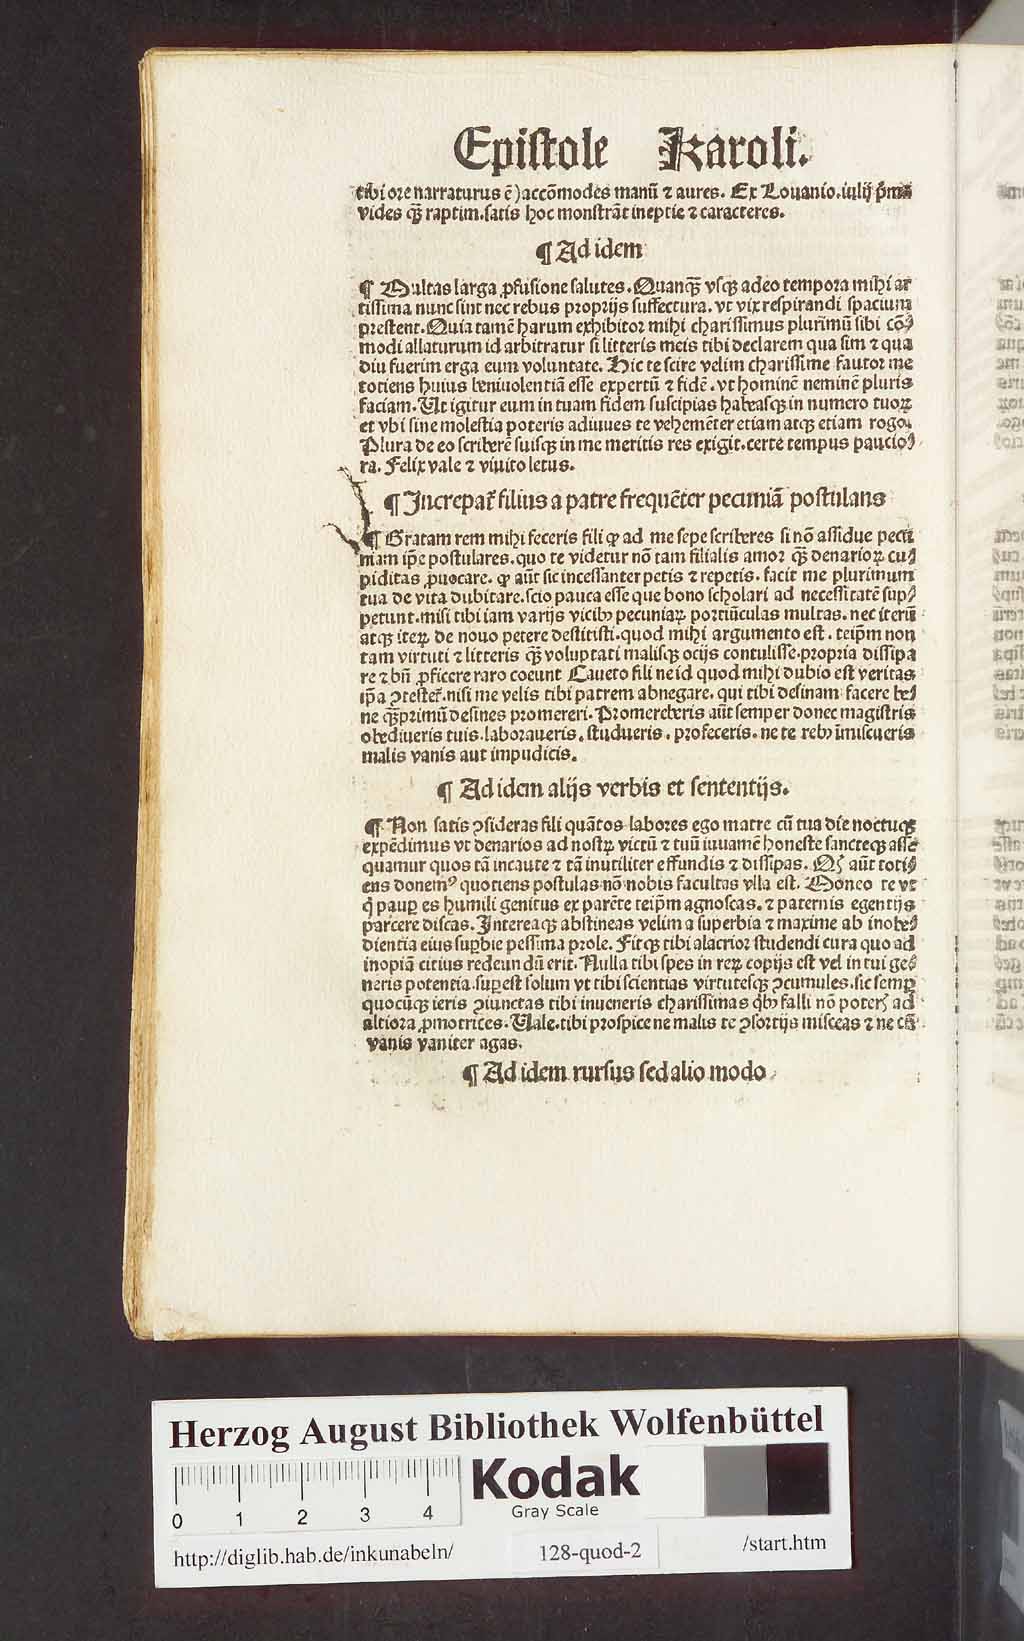 Epistole Karoli.
tibi ore narraturus ē) accōmodes manū ⁊ aures. Ex Louanio. iulij p̄ma
vides qꝫ̄ raptim. satis hoc monstrāt ineptie ⁊ caracteres.
¶ Ad idem
¶ Multas larga ꝓfusione salutes. Quanqꝫ̄ vsqꝫ adeo tempora mihi ar
tissima nunc sint nec rebus proprijs suffectura. vt vix respirandi spacium
prestent. Quia tamē harum exhibitor mihi charissimus plurimū sibi cō⸗
modi allaturum id arbitratur si litteris meis tibi declarem qua sim ⁊ qua
diu fuerim erga eum voluntate. Hic te scire velim charissime fautor me
totiens huius beniuolentiā esse expertū ⁊ fidē. vt hominē neminē pluris
faciam. Ut igitur eum in tuam fidem suscipias habeasqꝫ in numero tuoꝝ
et vbi sine molestia poteris adiuues te vehemēter etiam atqꝫ etiam rogo.
Plura de eo scriberē suisqꝫ in me meritis res exigit. certe tempus paucio⸗
ra. Felix vale ⁊ viuito letus.
¶ Increpat᷑ filius a patre frequēter pecuniā postulans
¶ Gratam rem mihi feceris fili ꝙ ad me sepe scriberes si nō assidue pecu
niam ip̄e postulares. quo te videtur nō tam filialis amor qꝫ̄ denarioꝝ cu⸗
piditas ꝓuocare. ꝙ aūt sic incessanter petis ⁊ repetis. facit me plurimum
tua de vita dubitare. scio pauca esse que bono scholari ad necessitatē sup⸗
petunt. misi tibi iam varijs vicibꝫ pecuniaꝝ portiūculas multas. nec iterū
atqꝫ iteꝝ de nouo petere destitisti. quod mihi argumento est. teip̄m non
tam virtuti ⁊ litteris qꝫ̄ voluptati malisqꝫ ocijs contulisse. propria dissipa
re ⁊ bn̄ ꝓficere raro coeunt Caueto fili ne id quod mihi dubio est veritas
ip̄a ꝯtestet᷑. nisi me velis tibi patrem abnegare. qui tibi desinam facere be⸗
ne qꝫ̄primū desines promereri. Promereberis aūt semper donec magistris
obediueris tuis. laboraueris. studueris. profeceris. ne te rebꝫ īmiscueris
malis vanis aut impudicis.
¶ Ad idem alijs verbis et sententijs.
¶ Non satis ꝯsideras fili quātos labores ego matre cū tua die noctuqꝫ
expēdimus vt denarios ad nostꝝ victū ⁊ tuū iuuamē honeste sancteqꝫ asse
quamur quos tā incaute ⁊ tā inutiliter effundis ⁊ dissipas. Qꝫ aūt toti⸗
ens donemꝰ quotiens postulas nō nobis facultas vlla est. Moneo te vt
q̇ paup̲ es humili genitus ex parēte teip̄m agnoscas. ⁊ paternis egentijs
parcere discas. Intereaqꝫ abstineas velim a superbia ⁊ maxime ab inobe⸗
dientia eius suꝑbie pessima prole. Fitqꝫ tibi alacrior studendi cura quo ad
inopiā citius redeundū erit. Nulla tibi spes in reꝝ copijs est vel in tui ge⸗
neris potentia. suꝑest solum vt tibi scientias virtutesqꝫ ꝯcumules. sic semꝑ
quocūqꝫ ieris ꝯiunctas tibi inueneris charissimas qͥbꝫ falli nō poterꝭ ad
altiora ꝓmotrices. Uale. tibi prospice ne malis te ꝯsortijs misceas ⁊ ne cū
vanis vaniter agas.
¶ Ad idem rursus sed alio modo
Herzog August Bibliothek Wolfenbüttel
Kodak
Gray Scale
0 1 2 3 4
http://diglib.hab.de/inkunabeln/ 128-quod-2 /start.htm